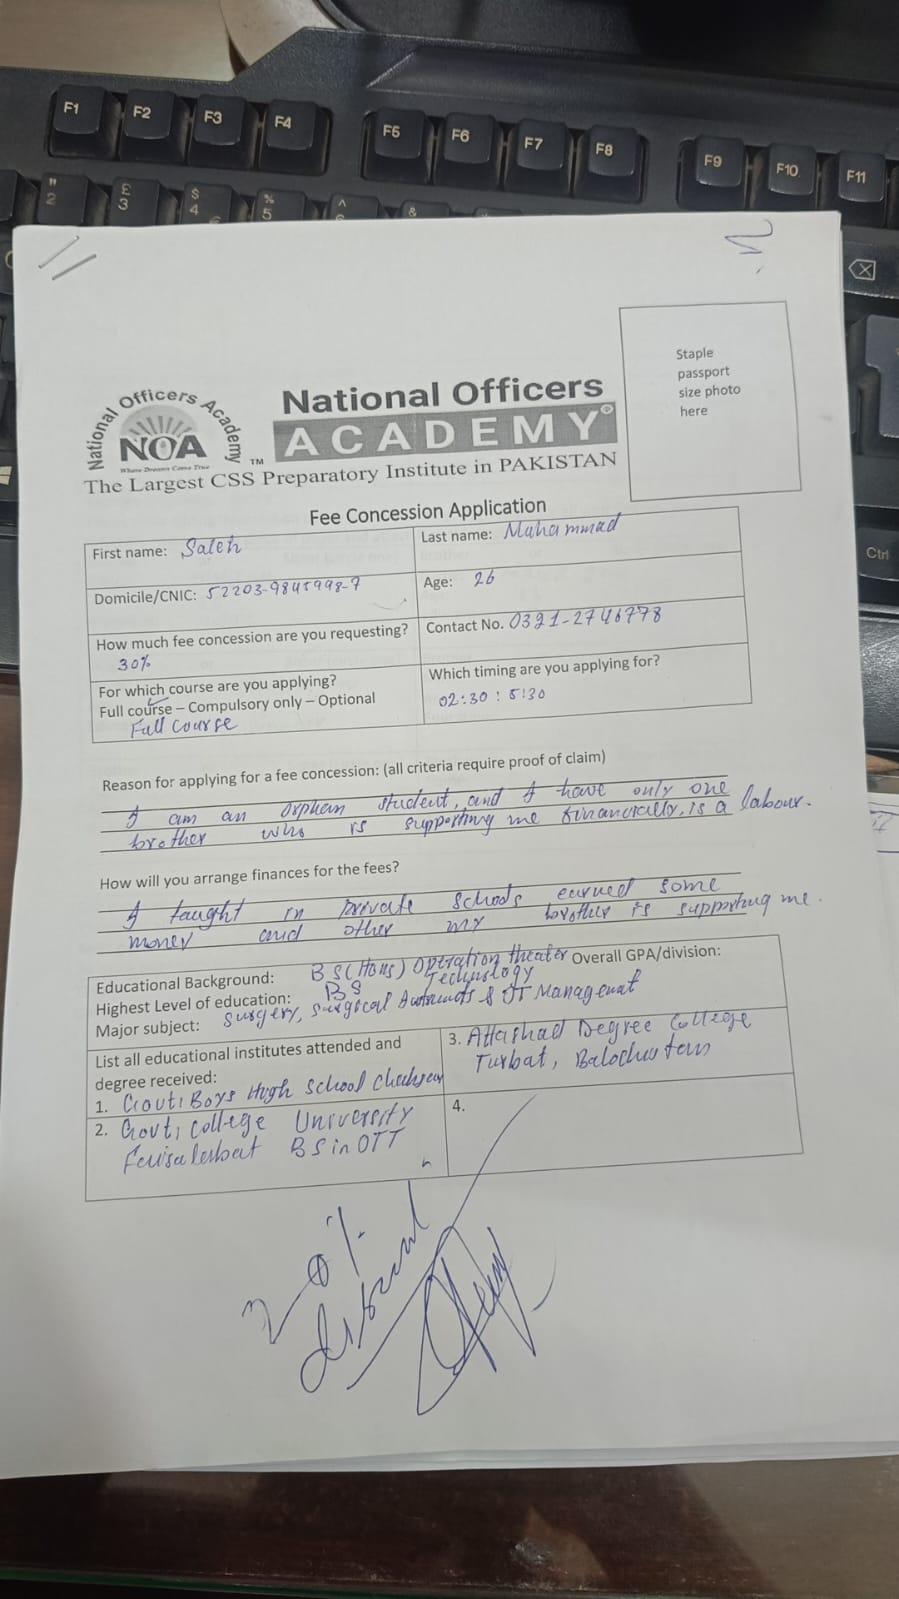 F1 F2 F3 F4 F5 F6 F7 F8 F9 F10 F11
" 2 £ 3 $ 4 € % 5 ^ &
Ctrl
Staple
passport
size photo
here
National Officers Academy
NOA
Where Dreams Come True
TM
National Officers
ACADEMY®
The Largest CSS Preparatory Institute in PAKISTAN
Fee Concession Application
First name: Saleh
Last name: Muhammad
Domicile/CNIC: 52203-9845998-7
Age: 26
How much fee concession are you requesting?
30%
Contact No. 0321-2746778
For which course are you applying?
Full course – Compulsory only – Optional
Full Course
Which timing are you applying for?
02:30 : 5:30
Reason for applying for a fee concession: (all criteria require proof of claim)
I am an orphan student, and I have only one
brother who is supporting me financially, is a labour.
How will you arrange finances for the fees?
I taught in private schools earned some
money and other my brother is supporting me.
Educational Background: BS(Hons) Operation theater Technology
Overall GPA/division:
Highest Level of education: BS
Major subject: Surgery, Surgical & OT
List all educational institutes attended and
degree received:
1. Govt: Boys High School
2. Govt; College University
BS in OTT
3. Degree College
Turbat,
4.
20%